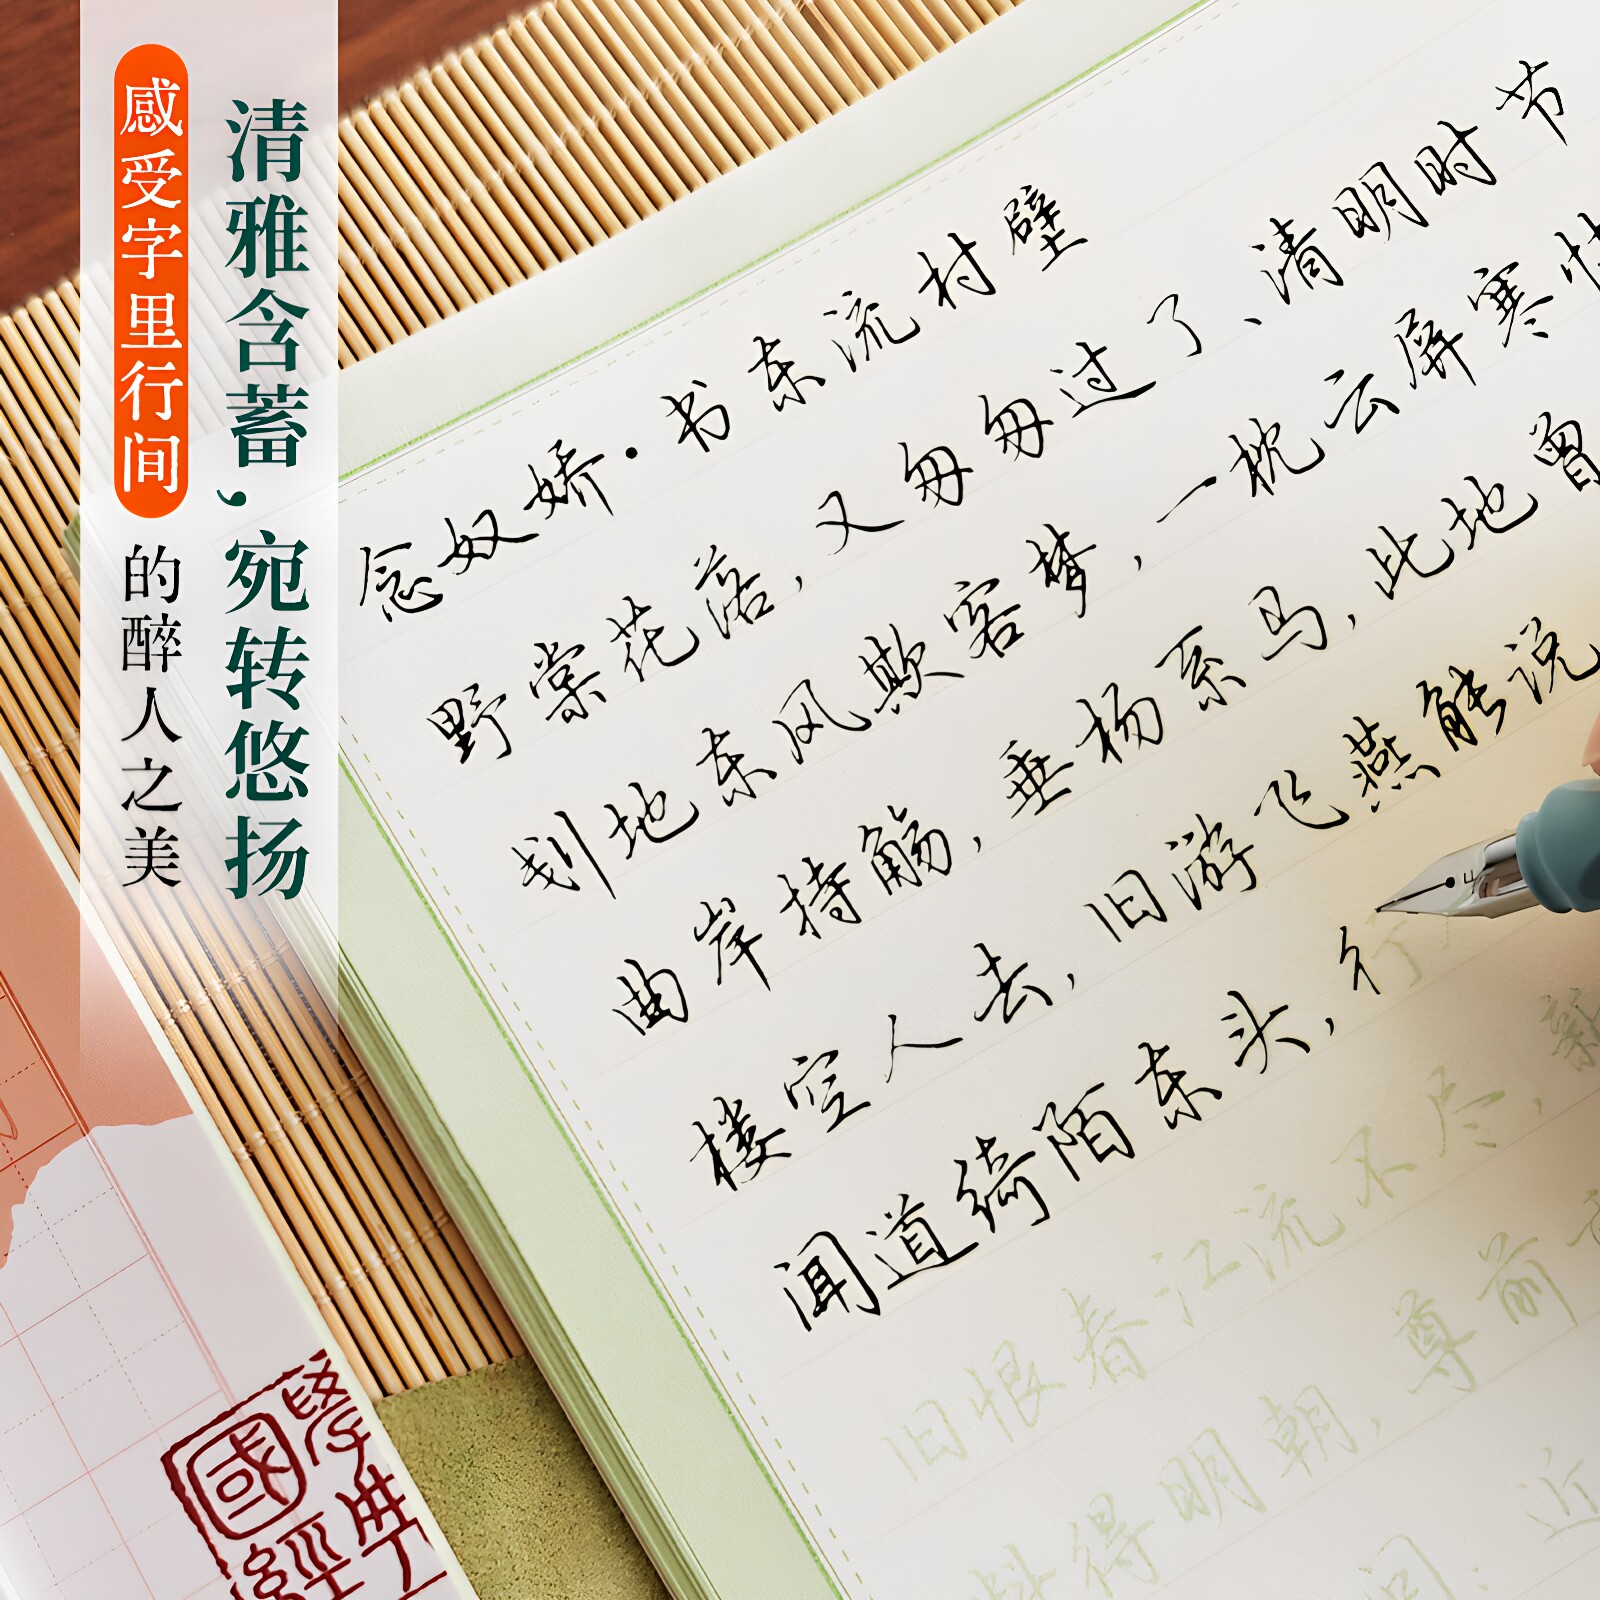 清雅含蓄，宛转悠扬
感受字里行间的醉人之美
念奴娇·书东流村壁
野棠花落，又匆匆过了、清明时节
刬地东风欺客梦，一枕云屏寒怯
曲岸持觞，垂杨系马，此地曾
楼空人去，旧游飞燕能说
闻道绮陌东头，行
旧恨春江流不尽，新
得明朝，尊前
间：近
國學經典